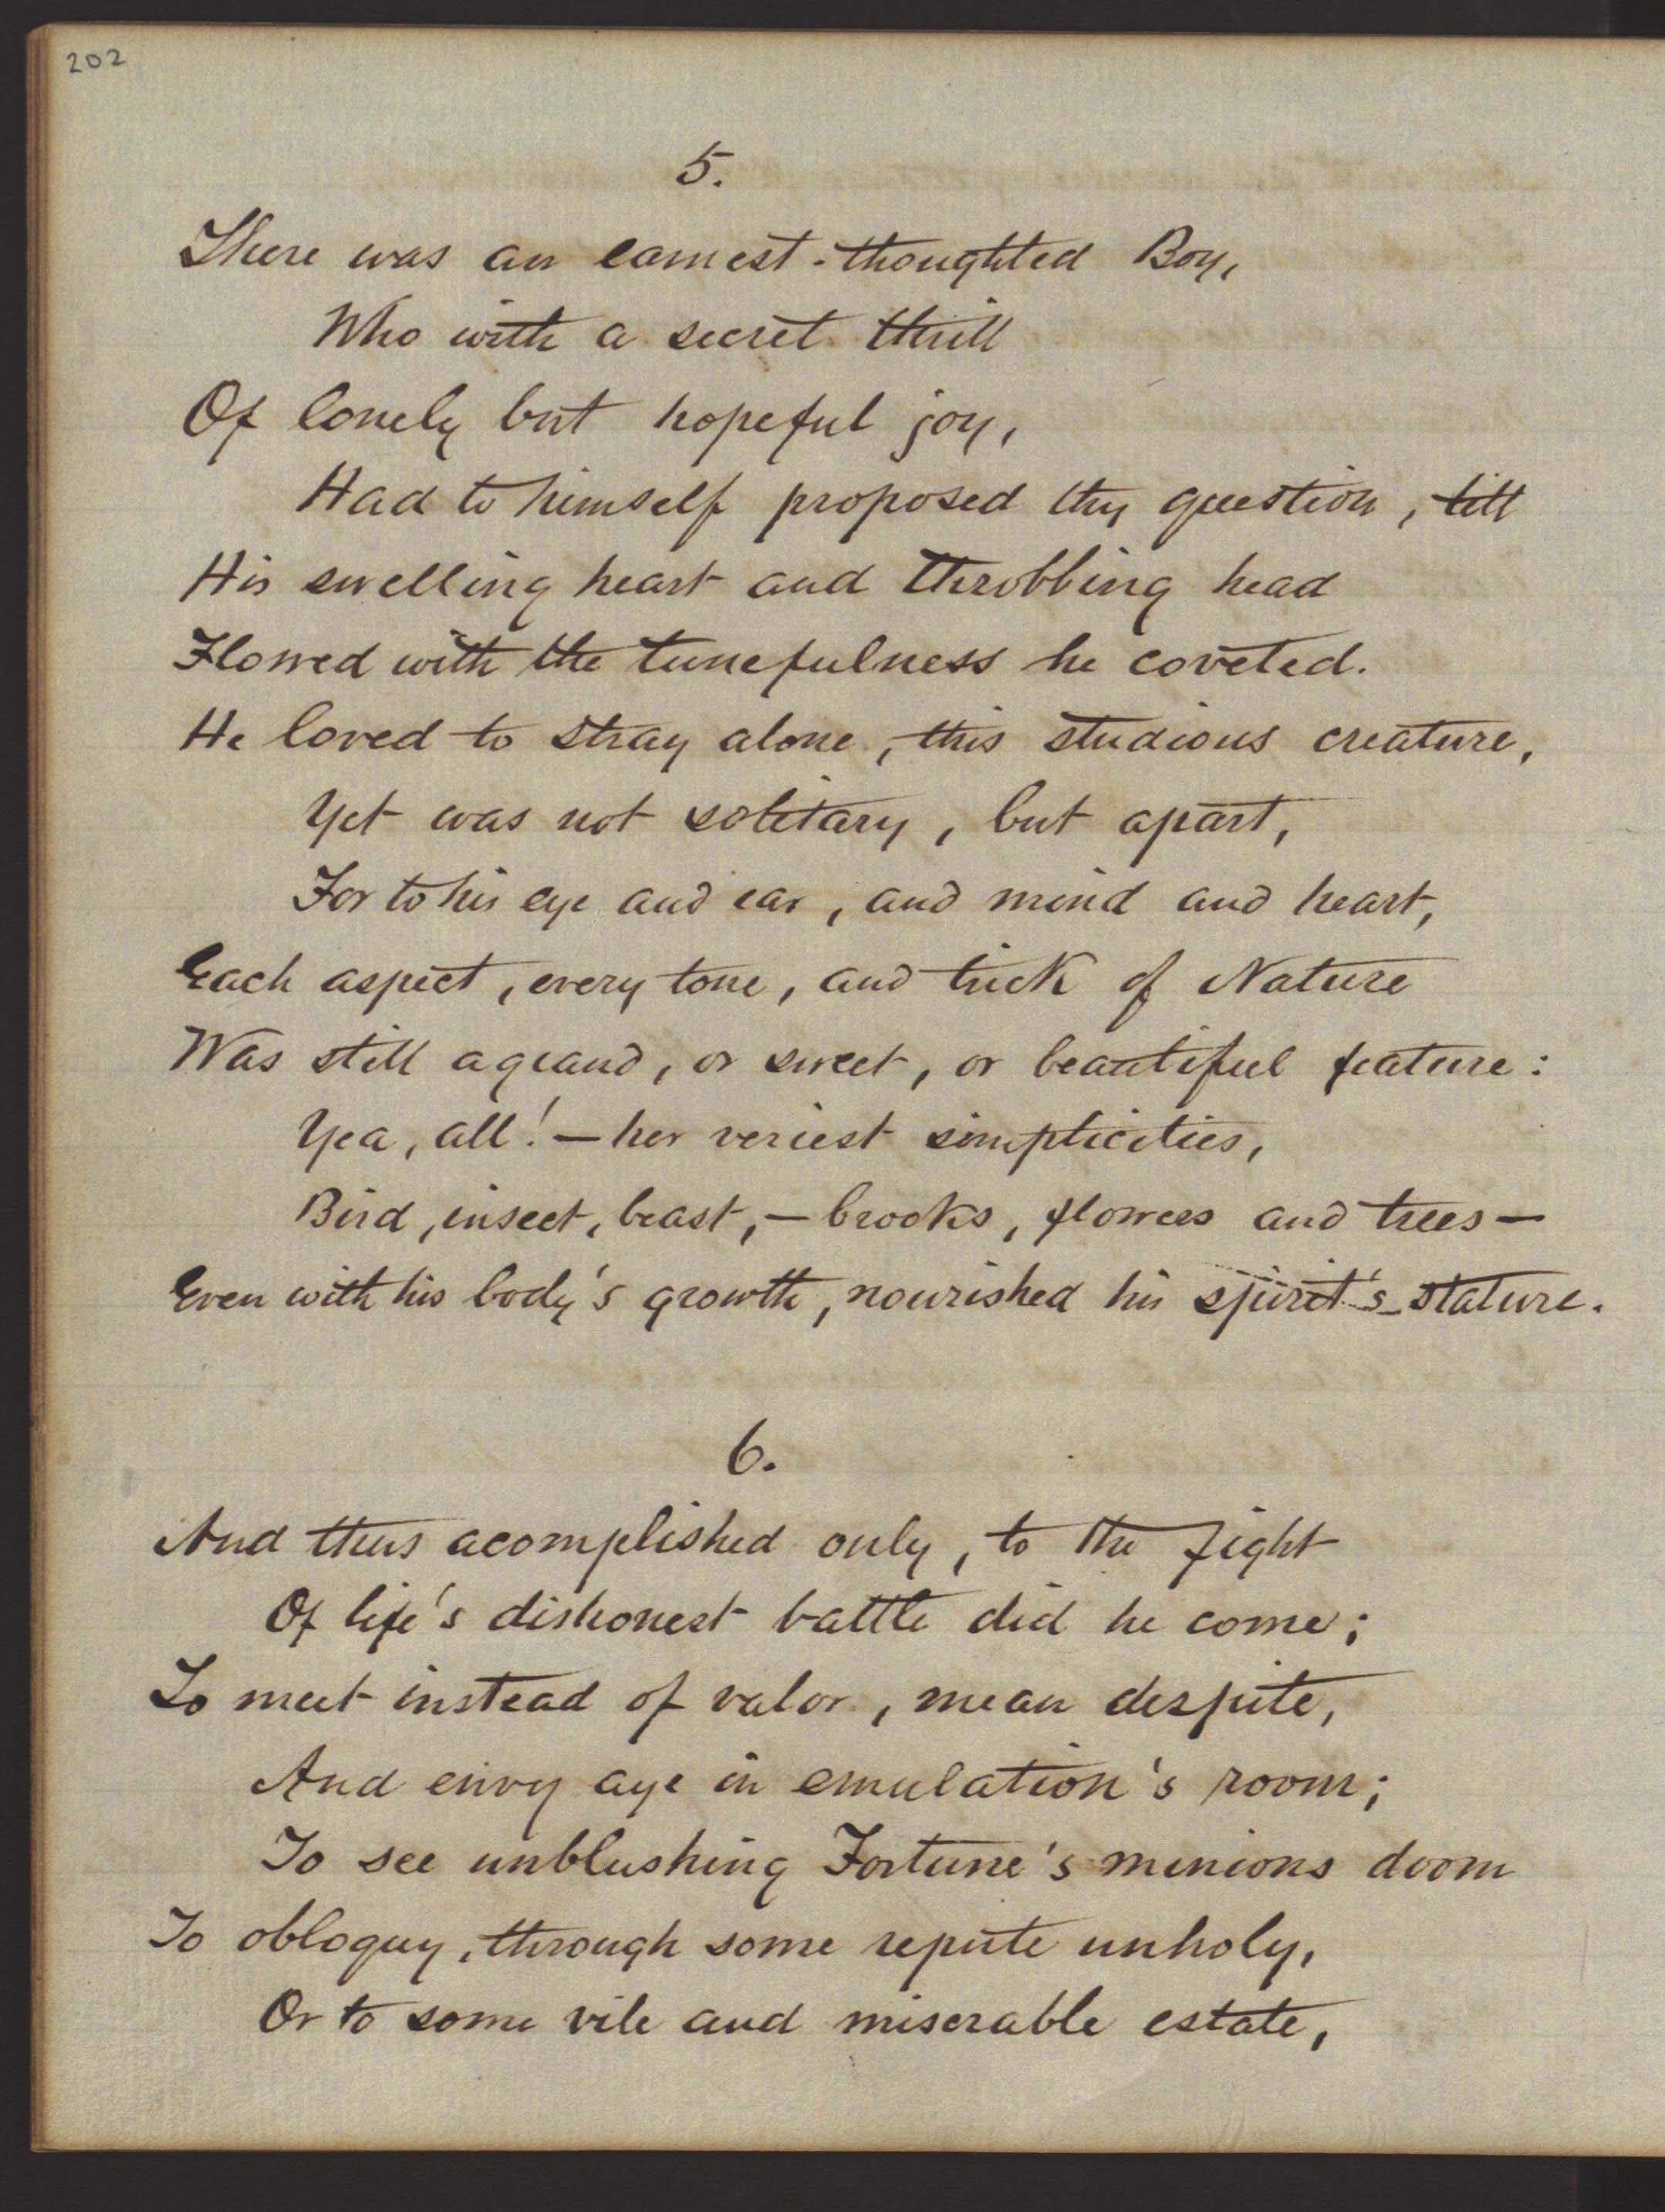 202
5.
There was an earnest-thoughted Boy,
Who with a secret thrill
Of lonely but hopeful joy,
Had to himself proposed thy question, till
His swelling heart and throbbing head
Flowed with the tunefulness he coveted.
He loved to stray alone, this studious creature,
Yet was not solitary, but apart,
For to his eye and ear, and mind and heart,
Each aspect, every tone, and trick of Nature
Was still a grand, or sweet, or beautiful feature:
Yea, all! — her veriest simplicities,
Bird, insect, beast, — brooks, flowers and trees —
Even with his body's growth, nourished his spirit's stature.
6.
And thus acomplished only, to the fight
Of life's dishonest battle did he come;
To meet instead of valor, mean despite,
And envy aye in emulation's room;
To see unblushing Fortune's minions doom
To obloquy, through some repute unholy,
Or to some vile and miserable estate,